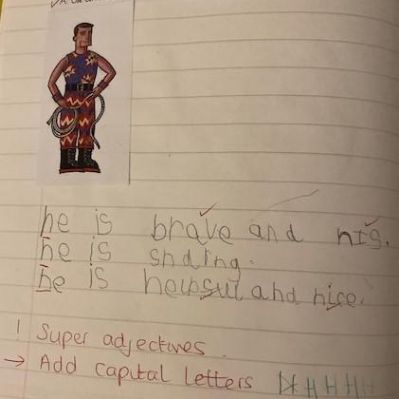 he is brave and nis.
he is snding.
he is helpsul and nice.
! Super adjectives.
→ Add capital letters H H H H H